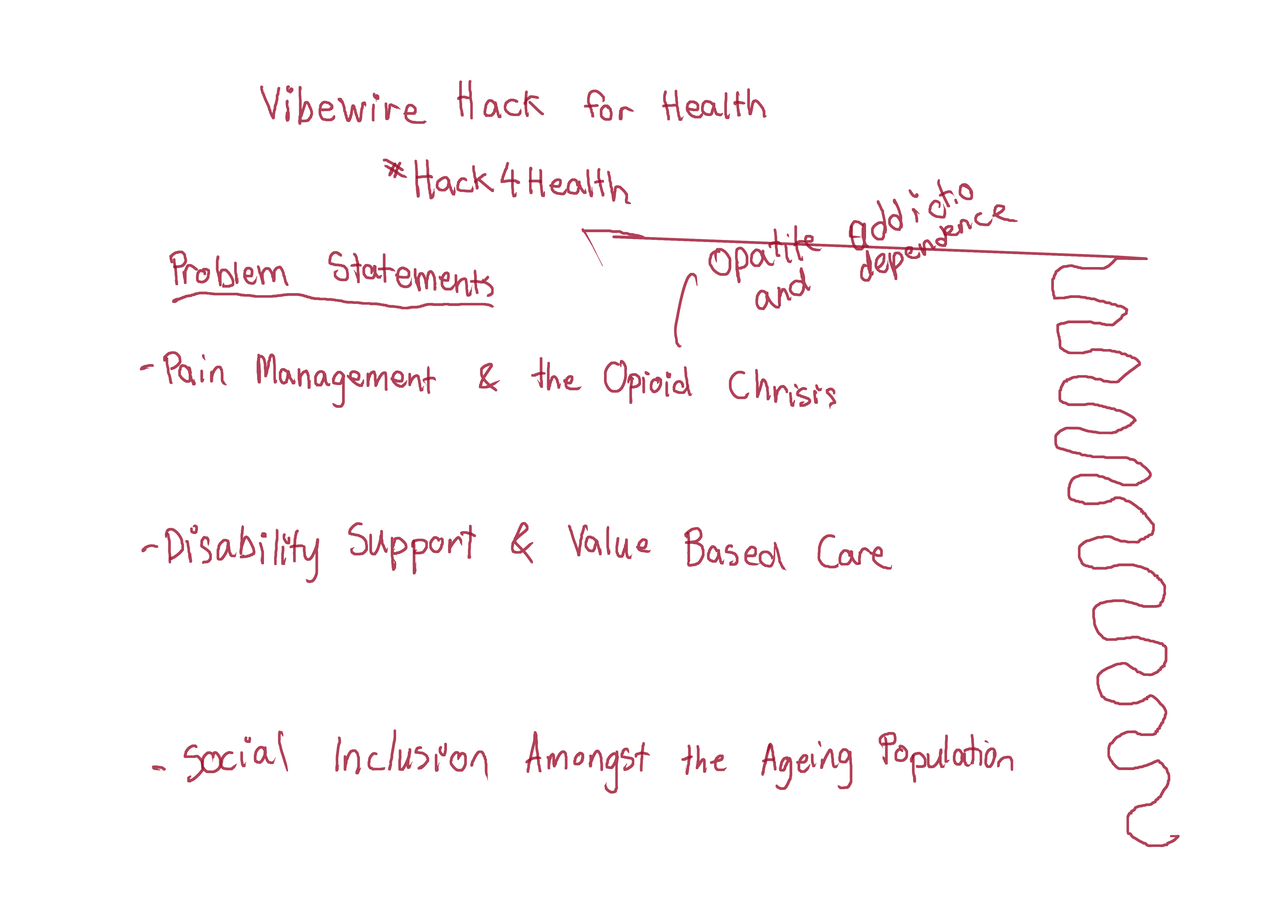 Vibewire Hack for Health
#Hack4Health
Problem Statements
Opatite addictio
and dependence
- Pain Management & the Opioid Chrisis
- Disability Support & Value Based Care
- Social Inclusion Amongst the Ageing Population